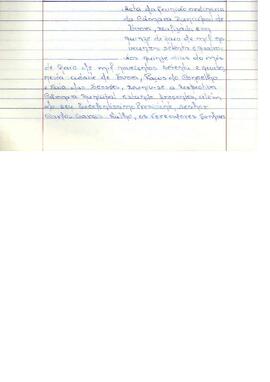 Acta da reunião ordinária
da Câmara Municipal de
realizada em
quinze de Maio de mil no
vecentos setenta e quatro.
Aos quinze dias do mês
de Maio de mil novecentos setenta e quatro
nesta cidade de Paços do Concelho
e Sala das Sessões, reuniu-se a
Câmara Municipal estando presentes, além
do seu Excelentíssimo Presidente, senhor
os Vereadores Senhores